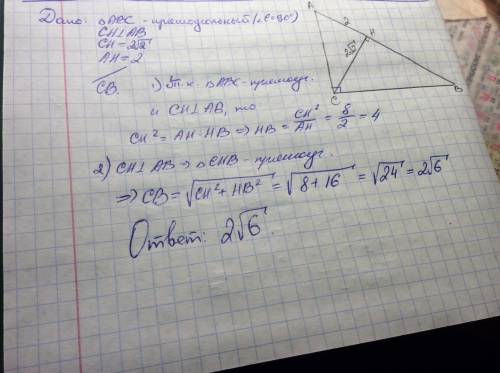 Дано: △ABC - прямоугольный (∠C=90°)
CH⊥AB
CH=2√2
AH=2
CB.
1) т.к. △ABC - прямоуг.
и CH⊥AB, то
CH² = AH·HB ⇒ HB = CH²/AH = 8/2 = 4
2) CH⊥AB ⇒ △CHB - прямоуг.
⇒ CB = √(CH²+HB²) = √(8+16) = √24 = 2√6
Ответ: 2√6.
A
2
H
2√2
C
B